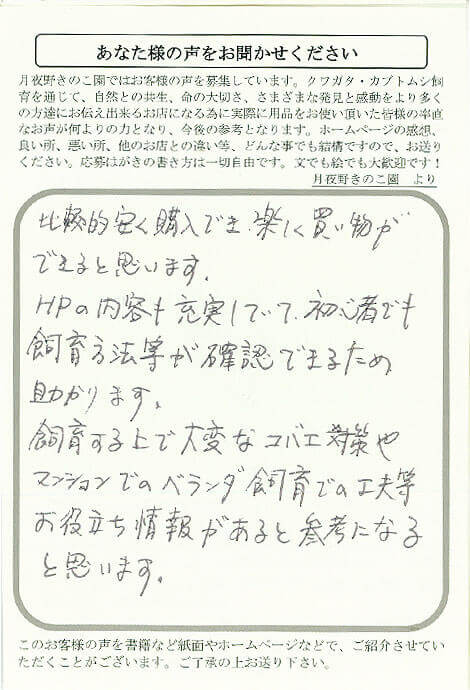 あなた様の声をお聞かせください
月夜野きのこ園ではお客様の声を募集しています。クワガタ・カブトムシ飼
育を通じて、自然との共生、命の大切さ、さまざまな発見と感動をより多く
の方達にお伝え出来るお店になる為に実際に用品をお使い頂いた皆様の率直
なお声が何よりの力となり、今後の参考となります。ホームページの感想、
良い所、悪い所、他のお店との違い等、どんな事でも結構ですので、お送り
ください。応募はがきの書き方は一切自由です。文でも絵でも大歓迎です！
月夜野きのこ園　より
比較的安く購入でき、楽しく買い物が
できると思います。
HPの内容も充実していて、初心者でも
飼育方法等が確認できるため
助かります。
飼育する上で大変なコバエ対策や
マンションでのベランダ飼育での工夫等
お役立ち情報があると参考になる
と思います。
このお客様の声を書籍など紙面やホームページなどで、ご紹介させてい
ただくことがございます。ご了承の上お送り下さい。